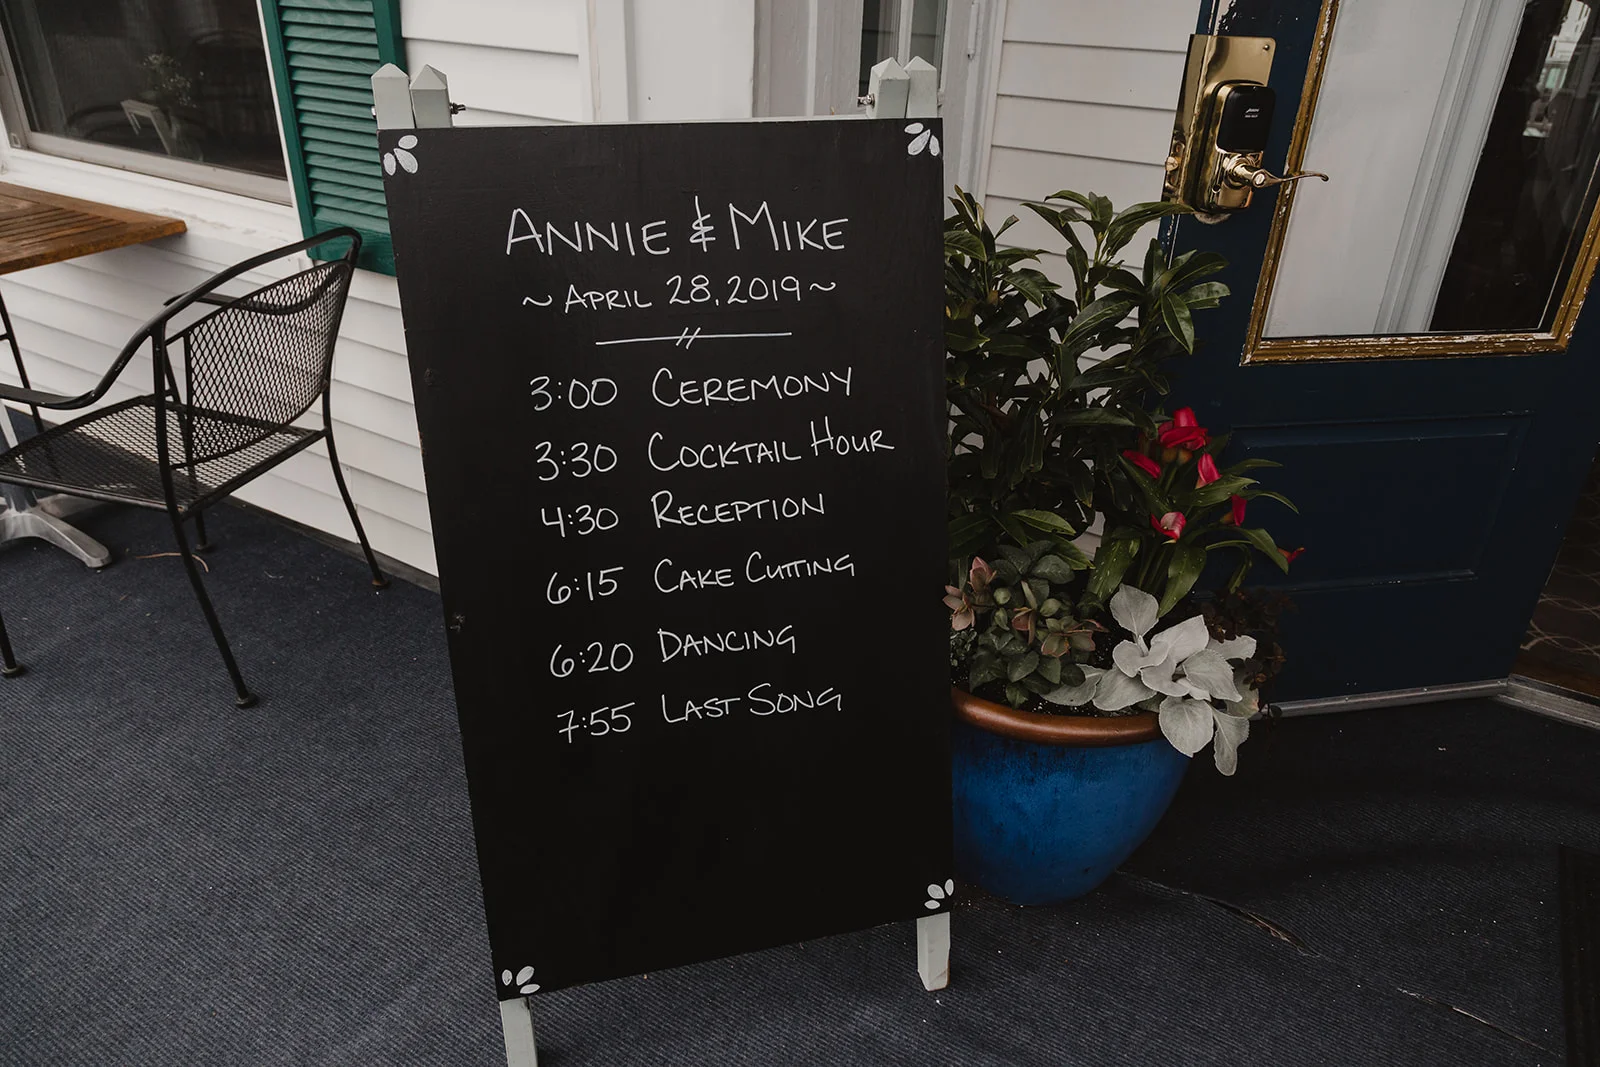 ANNIE & MIKE
~ APRIL 28, 2019 ~
3:00 CEREMONY
3:30 COCKTAIL HOUR
4:30 RECEPTION
6:15 CAKE CUTTING
6:20 DANCING
7:55 LAST SONG